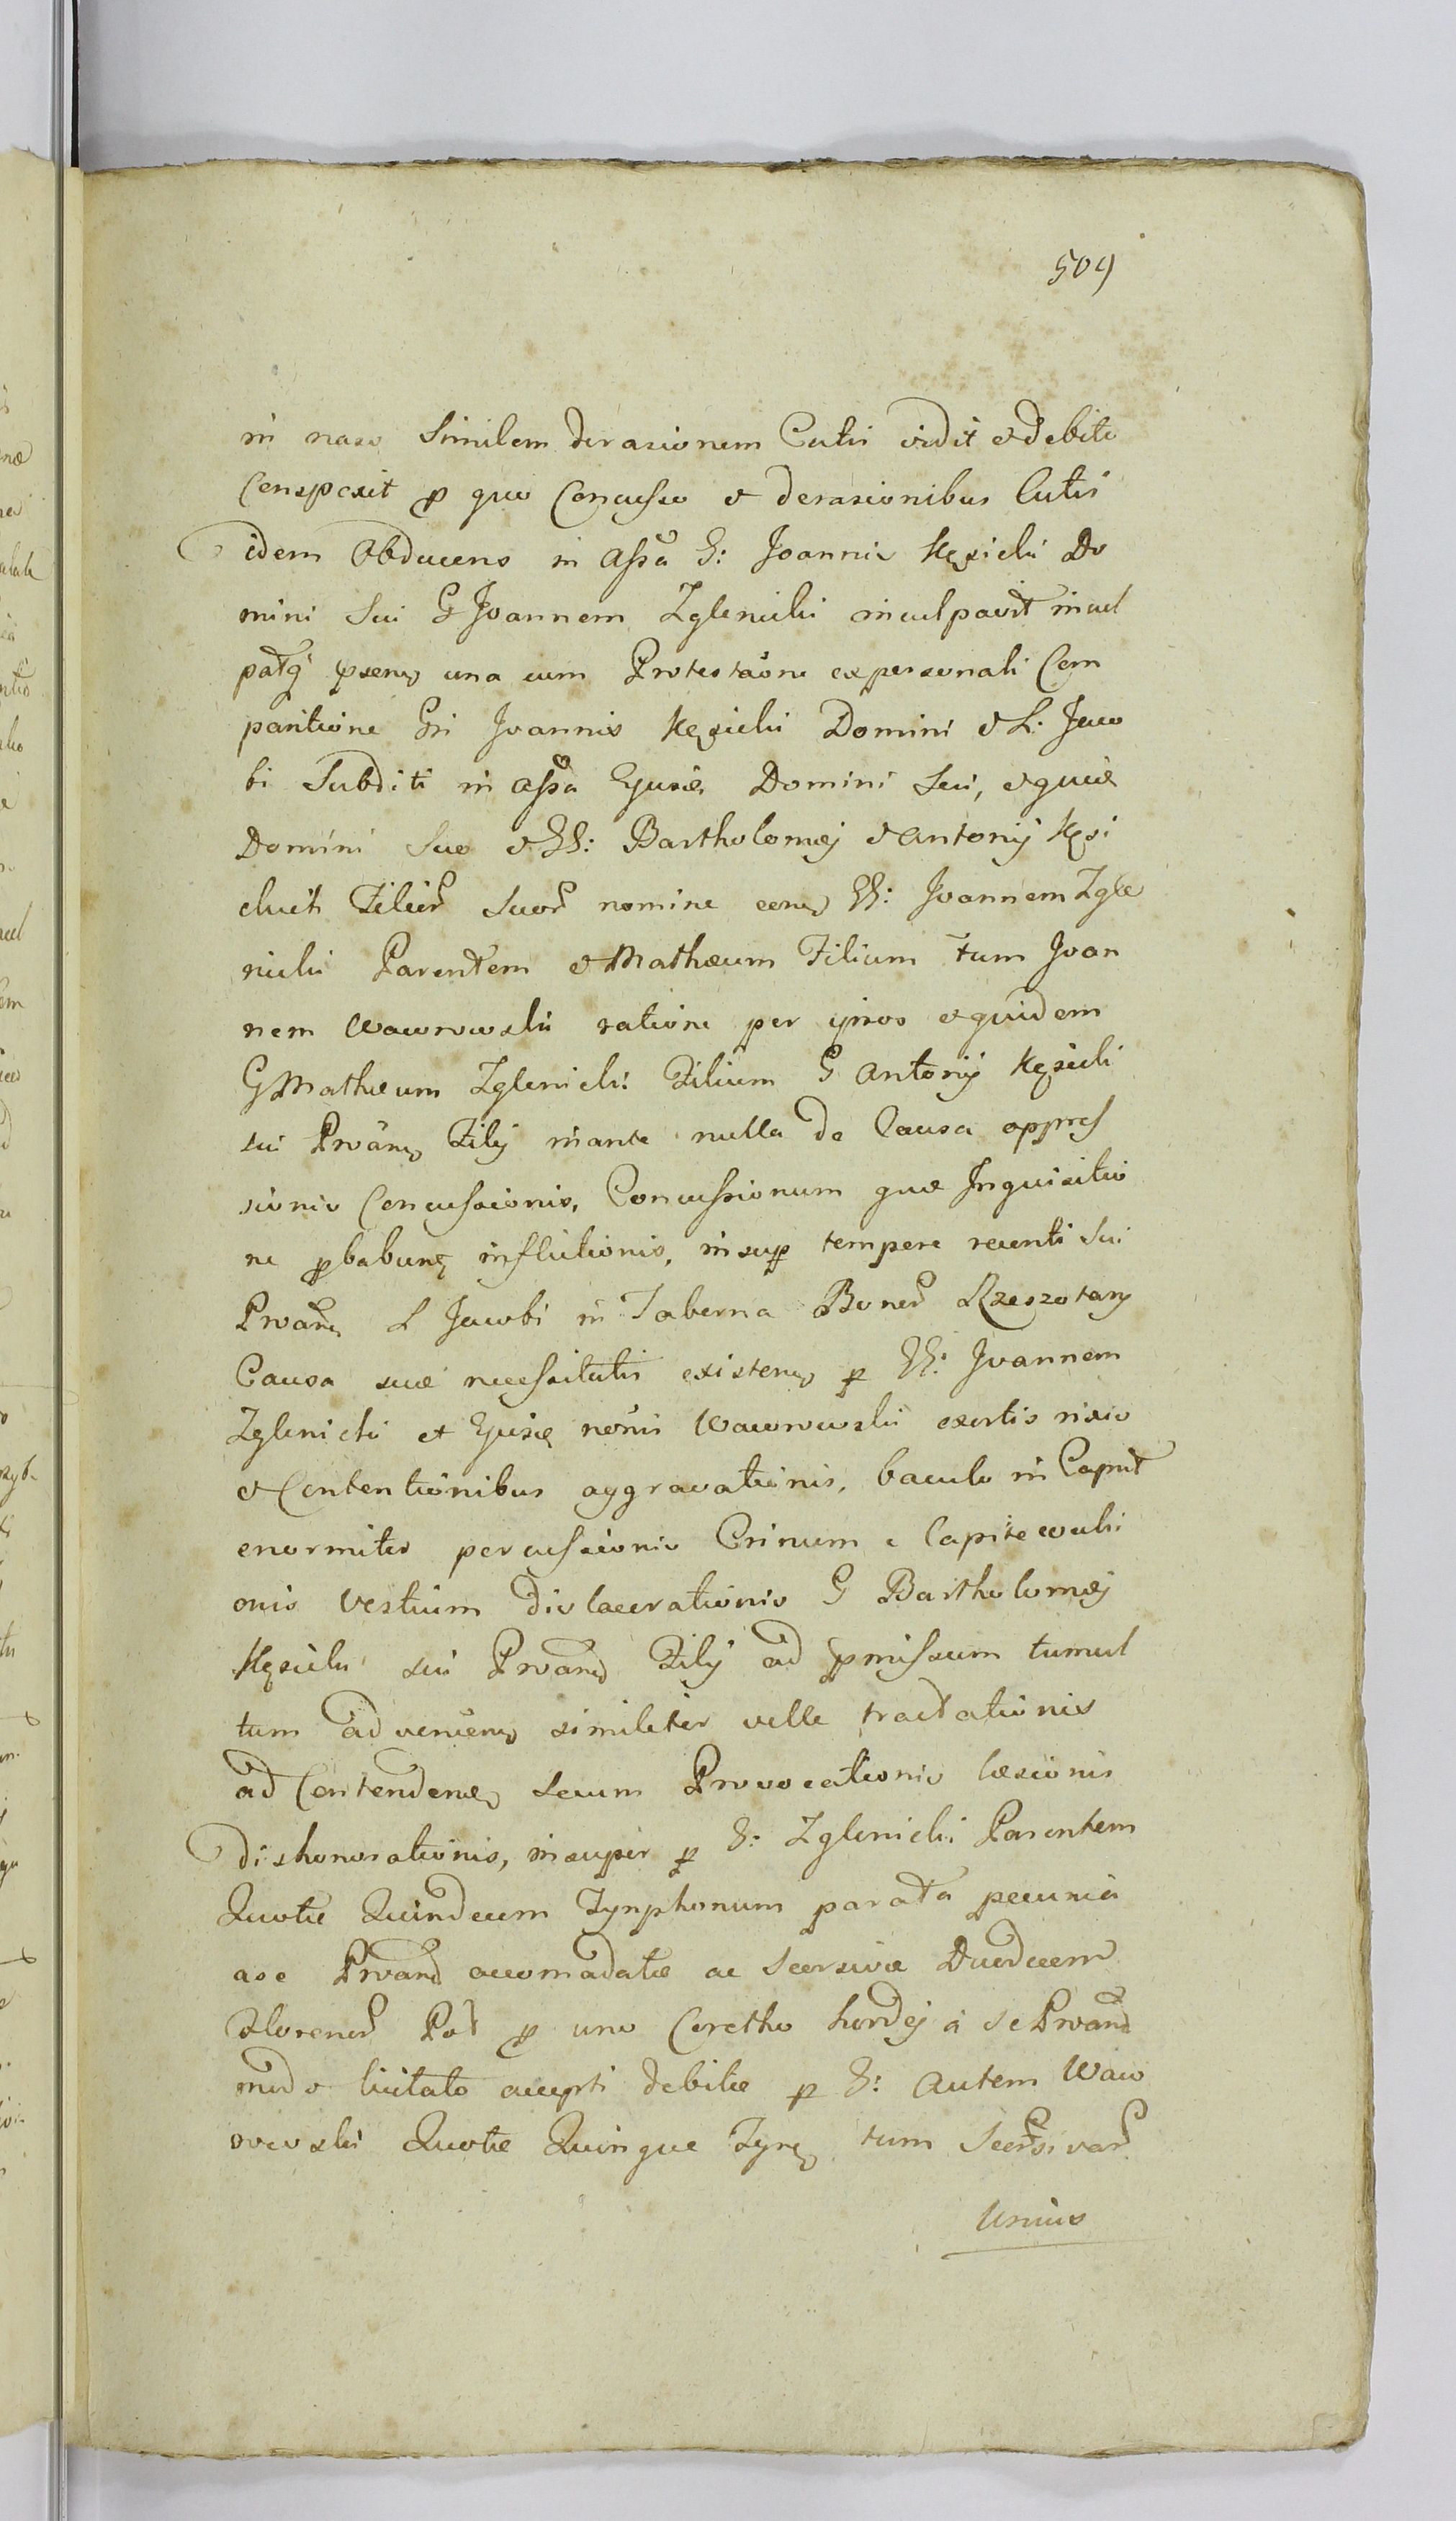 509
in naso Similem derasionem Cutis vidit et debite
Conspexit p quo Concusso et derasionibus Cutis
idem Obducens in assã G: Joannis Kęsicki Do
mini Sui G Joannem Zglenicki inculpavit incul
patq̃ una cum Protestaõne ex personali Com
paritione Gri Joannis Kęsicki Domini et L: Jaco
bi Subditi in assã Ejusde Domini Sui, et quidẽ
Domini Suo et GG: Bartholomæj et Antonij Kęsi
ckich Filior Suor nomine GG: Joannem Zgle
nicki Parentem et Mathæum Filium tum Joan
nem Wawrowski ratione per ipsos et quidem
G Mathæum Zglenicki Filium G Antonij Kęsicki
sui Prõtñs Filij in ante nulla de Causa oppres
sionis Concussionis, Concussionum quæ Inquisitio
ne pbabunt inflictionis, insup tempore recenti Sui
Prõtñs L Jacobi in Taberna Bonor Rzeszotary
Causa suæ necessitatis existens p GG: Joannem
Zglenicki et Ejusde nõnis Wawrowski exortis rixis
et Contentionibus aggravationis, baculo in Caput
enormiter percussionis Crinum e Capite evulsi
onis Vestium dislacerationis G Bartholomæj
Kęsicki sui Filij ad pmissum tumul
tum adveniens similiter velle tractationis
ad Contendens Secum Provocationis læsionis
dishonorationis, insuper p G: Zglenicki Parentem
Quotæ Quindecim Tynphonum parata pecunia
a se accomadatæ ac Seorsivæ Duodecem
Florenor Pol p uno Coretho hordej a se
modo licitato accepti debitæ p G: autem Waw
rowski Quotæ Quinque Tyn tum Seorsivar
Unius